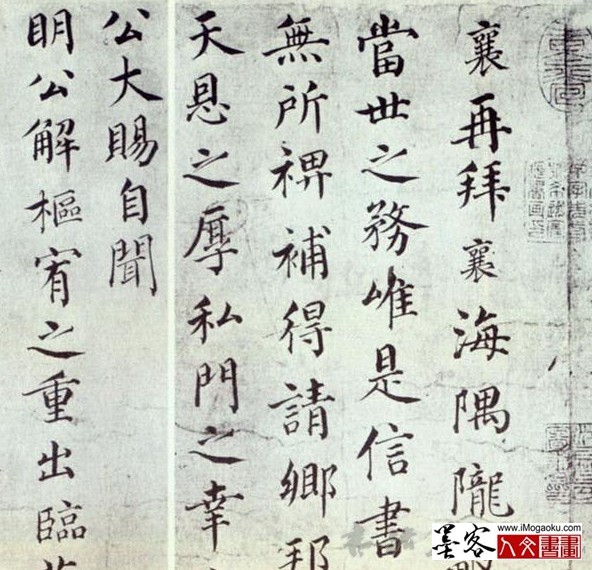 襄再拜襄海隅隴
當世之務唯是信書
無所裨補得請鄉邦
天恩之厚私門之幸
公大賜自聞
明公解樞宥之重出臨
www.iMogaoku.com
墨客
人文書畫